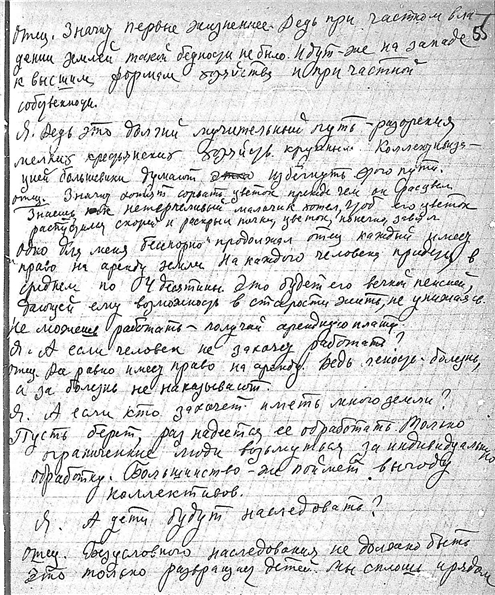 отец. Значит первое жизненнее. Ведь при частном вла- 55
дании землей такой бедности не было. Идут-же на западе
к высшим формам хозяйства и при частной
собственности.
Я. Ведь это долгий мучительный путь - разорения
мелких крестьянских хозяйств крупным. Коллективиза-
цией большевики думают избегнуть этого пути.
отец. Значит хотят сорвать цветок прежде чем он расцвел.
Знаешь как нетерпеливый мальчик хотел, чтоб его цветок
распустился скорей и раскрыл почки, цветок, конечно, завял
Одно для меня бесспорно продолжал отец каждый имеет
право на аренду земли. На каждого человека придется в
среднем по десятины. Это будет его вечной пенсией,
дающей ему возможность в старости жить, не унижаясь.
Не можешь работать - получай арендную плату.
Я. А если человек не захочет работать?
отец. Все равно имеет право на аренду. Ведь леность - болезнь,
а за болезнь не наказывают.
Я. А если кто захочет иметь много земли?
Пусть берет, раз надеется, ее обработать. Только
ограниченные люди возьмуться за индивидуальную
обработку. Большинство-же поймет выгоду
коллективов.
Я. А дети будут наследовать?
отец. Безусловного наследования не должно быть
Это только развращает детей. Мы сплошь и рядом